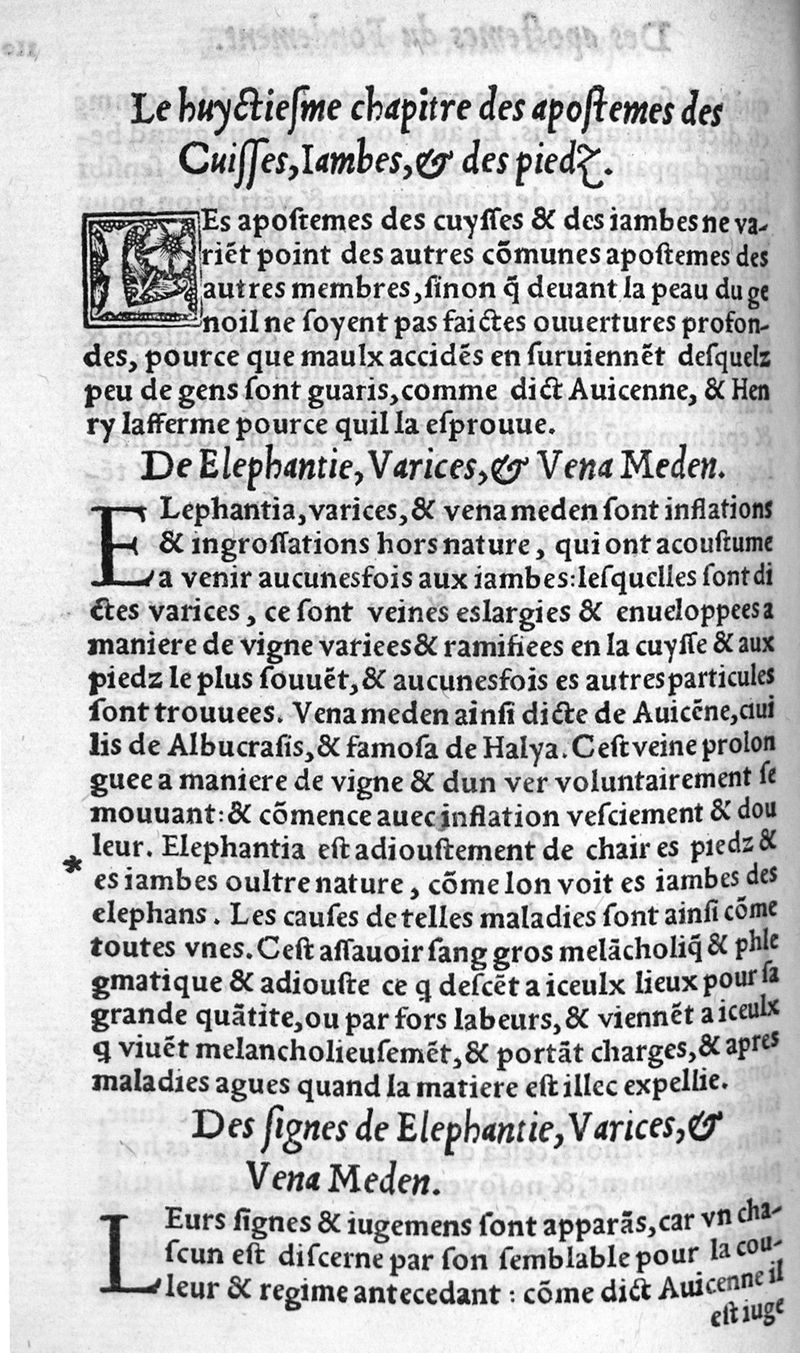 Le huyctieſme chapitre des apoſtemes des
Cuiſſes, Iambes, & des piedz.
LEs apoſtemes des cuyſſes & des iambes ne va-
riẽt point des autres cõmunes apoſtemes des
autres membres, ſinon q̃ deuant la peau du ge
noil ne ſoyent pas faictes ouuertures profon-
des, pource que maulx accidẽs en ſuruiennẽt deſquelz
peu de gens ſont guaris, comme dict Auicenne, & Hen
ry lafferme pource quil la eſprouue.
De Elephantie, Varices, & Vena Meden.
ELephantia, varices, & vena meden ſont inflations
& ingroſſations hors nature, qui ont acouſtume
a venir aucunesfois aux iambes: leſquelles ſont di
ctes varices, ce ſont veines eslargies & enueloppees a
maniere de vigne variees & ramifiees en la cuyſſe & aux
piedz le plus ſouuẽt, & aucunesfois es autres particules
ſont trouuees. Vena meden ainſi dicte de Auicẽne, ciui
lis de Albucraſis, & famoſa de Halya. Ceſt veine prolon
guee a maniere de vigne & dun ver voluntairement ſe
mouuant: & cõmence auec inflation veſciement & dou
leur. Elephantia eſt adiouſtement de chair es piedz &
* es iambes oultre nature, cõme lon voit es iambes des
elephans. Les cauſes de telles maladies ſont ainſi cõme
toutes vnes. Ceſt aſſauoir ſang gros melãcholiq̃ & phle
gmatique & adiouſte ce q deſcẽt a iceulx lieux pour ſa
grande quãtite, ou par fors labeurs, & viennẽt a iceulx
q viuẽt melancholieuſemẽt, & portãt charges, & apres
maladies agues quand la matiere eſt illec expellie.
Des ſignes de Elephantie, Varices, &
Vena Meden.
LEurs ſignes & iugemens ſont apparãs, car vn cha-
ſcun eſt diſcerne par ſon ſemblable pour la cou-
leur & regime antecedant : cõme dict Auicenne il
eſt iuge